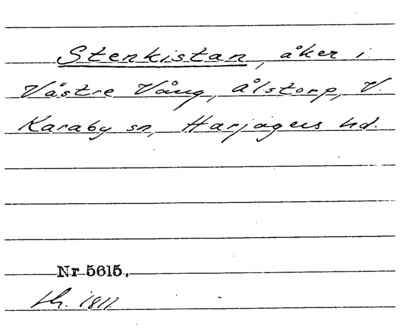 Stenkistan, åker i
Västre Vång, Ålstorp, V.
Karaby sn, Harjagers hd.
Nr 5615.
1811